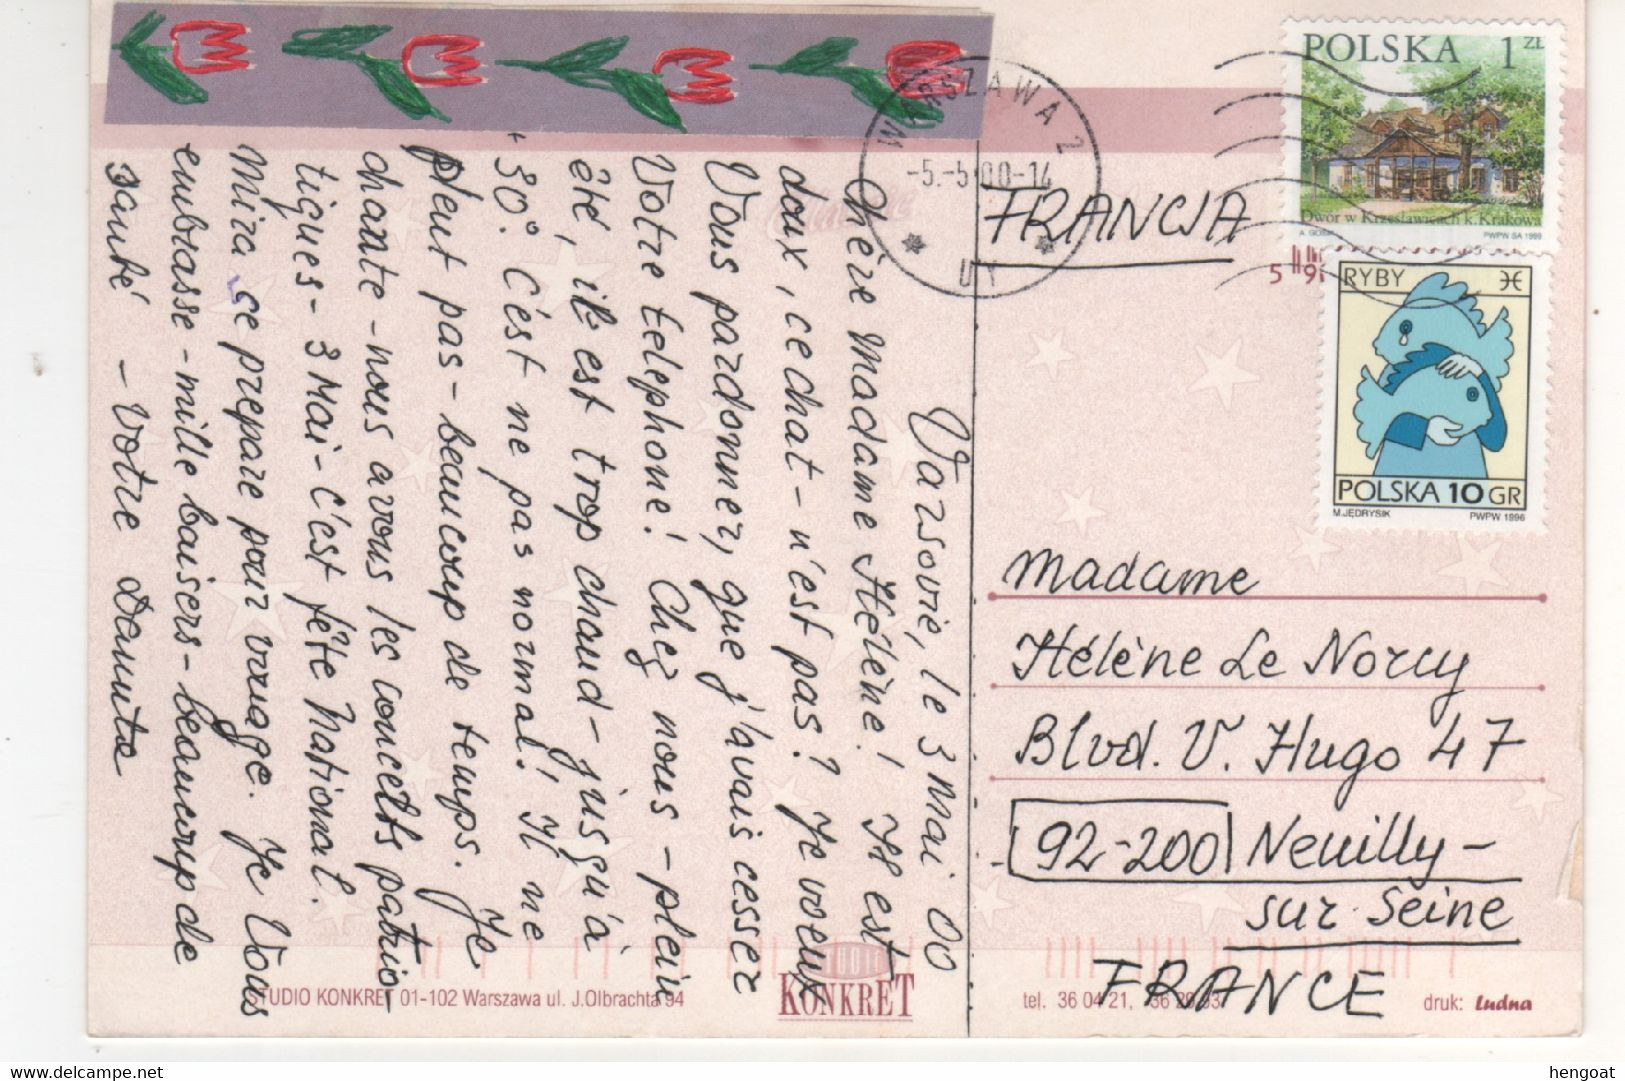 Varsovie, le 3 Mai 00
Chère Madame Hélène! Il est
doux, ce chat - n'est pas? Je voeux
Vous pardonner, que j'avais cesser
Votre telephone! Chez nous - plein
été, il est trop chaud - jusqu'à
+30°. C'est ne pas normal! Il ne
pleut pas - beaucoup de temps. Je
chante - nous avons les concerts patrio-
tiques - 3 Mai - C'est fête National.
Mira se prepare pour voyage. Je Vous
embrasse - mille baisers - beaucoup de
santé - Votre Danuta
WARSZAWA 2
-5.-5 00-14
UY
FRANCJA
POLSKA 1 ZŁ
Dwór w Krzesławicach k. Krakowa
PWPW SA 1999
RYBY
POLSKA 10 GR
M.JĘDRYSIK PWPW 1996
Madame
Hélène Le Norcy
Blvd. V. Hugo 47
92-200 Neuilly-
sur-Seine
FRANCE
STUDIO KONKRET 01-102 Warszawa ul. J.Olbrachta 94
KONKRET
tel. 36 04 21, 36 29 93
druk: Ludna
hengoat
delcampe.net